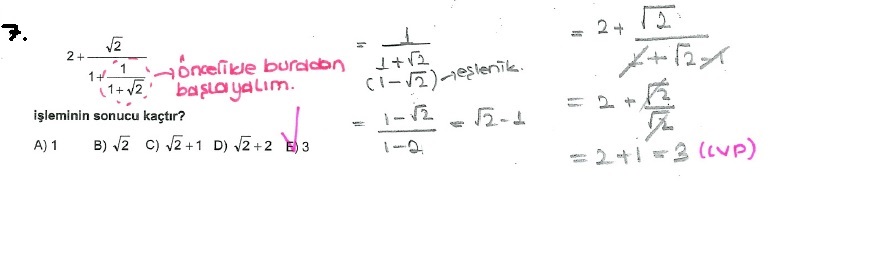 7.
2 + √2 / (1 + 1 / (1 + √2)) → Öncelikle buradan
başlayalım.
işleminin sonucu kaçtır?
A) 1 B) √2 C) √2 + 1 D) √2 + 2 E) 3
= 1 / (1 + √2)
(1 - √2) → eşlenik.
= (1 - √2) / (1 - 2) = √2 - 1
= 2 + √2 / (1 + √2 - 1)
= 2 + √2 / √2
= 2 + 1 = 3 (CVP)